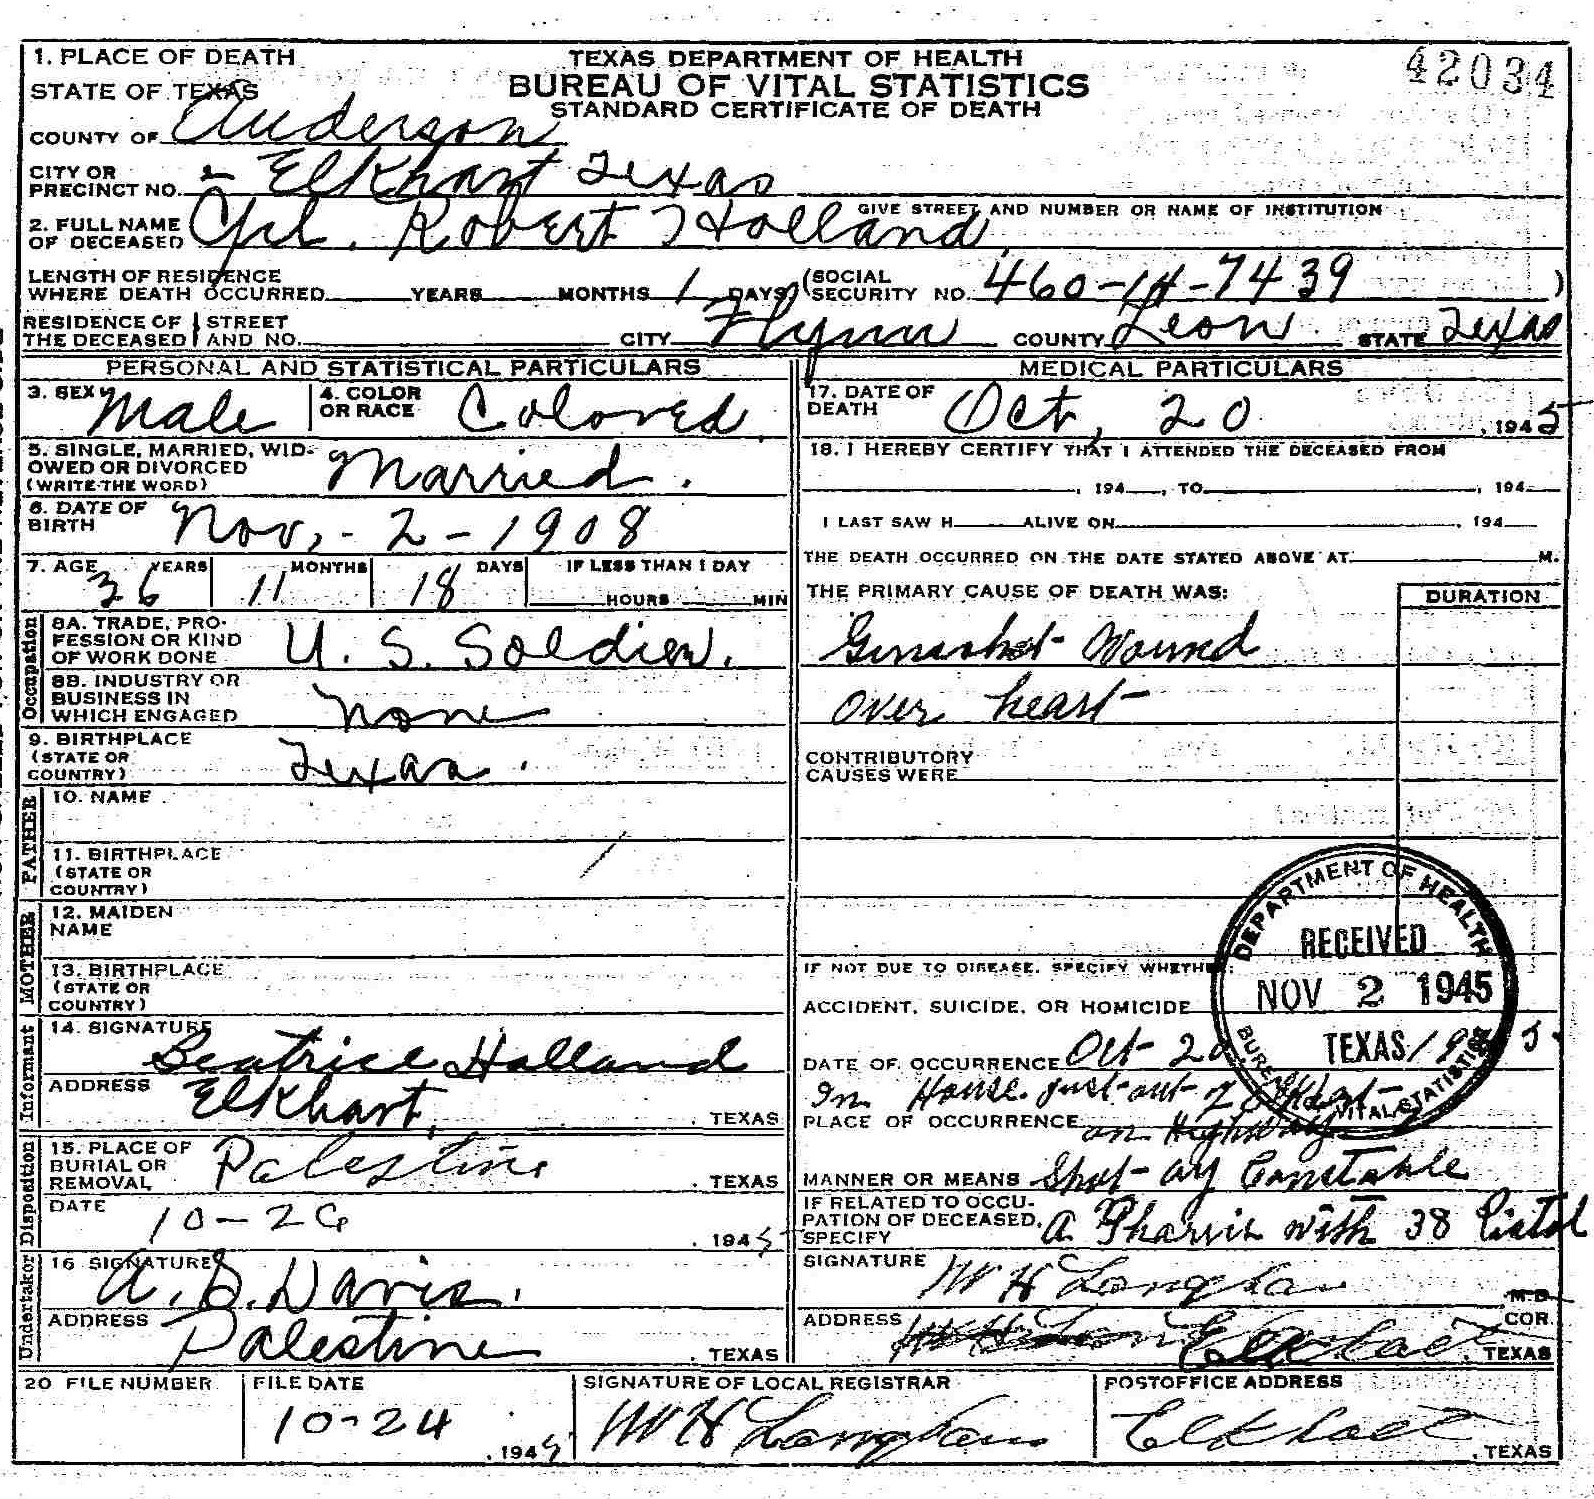 1. PLACE OF DEATH
TEXAS DEPARTMENT OF HEALTH
42034
STATE OF TEXAS
BUREAU OF VITAL STATISTICS
STANDARD CERTIFICATE OF DEATH
COUNTY OF Anderson
CITY OR PRECINCT NO. 2 - Elkhart Texas
GIVE STREET AND NUMBER OR NAME OF INSTITUTION
2. FULL NAME OF DECEASED Cpl. Robert Holland
LENGTH OF RESIDENCE WHERE DEATH OCCURRED YEARS MONTHS 1 DAYS (SOCIAL SECURITY NO. 460-14-7439)
RESIDENCE OF THE DECEASED STREET AND NO. CITY Flynn COUNTY Leon STATE Texas
PERSONAL AND STATISTICAL PARTICULARS
3. SEX Male 4. COLOR OR RACE Colored
5. SINGLE, MARRIED, WIDOWED OR DIVORCED (WRITE THE WORD) Married.
6. DATE OF BIRTH Nov, - 2 - 1908
7. AGE 36 YEARS 11 MONTHS 18 DAYS IF LESS THAN 1 DAY HOURS MIN
Occupation
8A. TRADE, PROFESSION OR KIND OF WORK DONE U. S. Soldier.
8B. INDUSTRY OR BUSINESS IN WHICH ENGAGED None
9. BIRTHPLACE (STATE OR COUNTRY) Texas.
FATHER
10. NAME
11. BIRTHPLACE (STATE OR COUNTRY)
MOTHER
12. MAIDEN NAME
13. BIRTHPLACE (STATE OR COUNTRY)
Informant
14. SIGNATURE Beatrice Holland
ADDRESS Elkhart, . TEXAS
Disposition
15. PLACE OF BURIAL OR REMOVAL Palestine . TEXAS
DATE 10-26 . 1945
Undertaker
16 SIGNATURE A. B. Davis.
ADDRESS Palestine . TEXAS
MEDICAL PARTICULARS
17. DATE OF DEATH Oct, 20 , 1945
18. I HEREBY CERTIFY THAT I ATTENDED THE DECEASED FROM
, 194 , TO , 194
I LAST SAW H ALIVE ON , 194
THE DEATH OCCURRED ON THE DATE STATED ABOVE AT M.
THE PRIMARY CAUSE OF DEATH WAS: DURATION
Gunshot Wound
over heart
CONTRIBUTORY CAUSES WERE
IF NOT DUE TO DISEASE, SPECIFY WHETHER:
ACCIDENT, SUICIDE, OR HOMICIDE
DATE OF OCCURRENCE Oct 20
In House just out of Elkhart
PLACE OF OCCURRENCE on Highway
MANNER OR MEANS Shot by Constable
IF RELATED TO OCCUPATION OF DECEASED, SPECIFY A with 38 Pistol
SIGNATURE W H M.D.
ADDRESS Elkhart COR. . TEXAS
DEPARTMENT OF HEALTH
RECEIVED
NOV 2 1945
TEXAS
BUREAU VITAL STATISTICS
20 FILE NUMBER
FILE DATE 10-24 , 1945
SIGNATURE OF LOCAL REGISTRAR W H
POSTOFFICE ADDRESS Elkhart , TEXAS